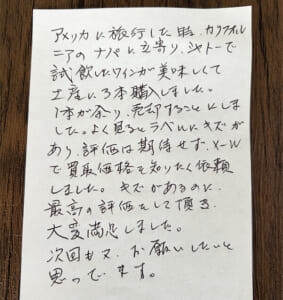 アメリカに旅行した時、カリフォル
ニアのナパに立寄り、シャトーで
試飲したワインが美味しくて
土産に3本購入しました。
1本が余り、売却することにしま
した。よく見るとラベルにキズが
あり、評価は期待せず、メール
で買取価格を知りたく依頼
しました。キズがあるのに、
最高の評価をして頂き、
大変満足しました。
次回も又、お願いしたいと
思っています。